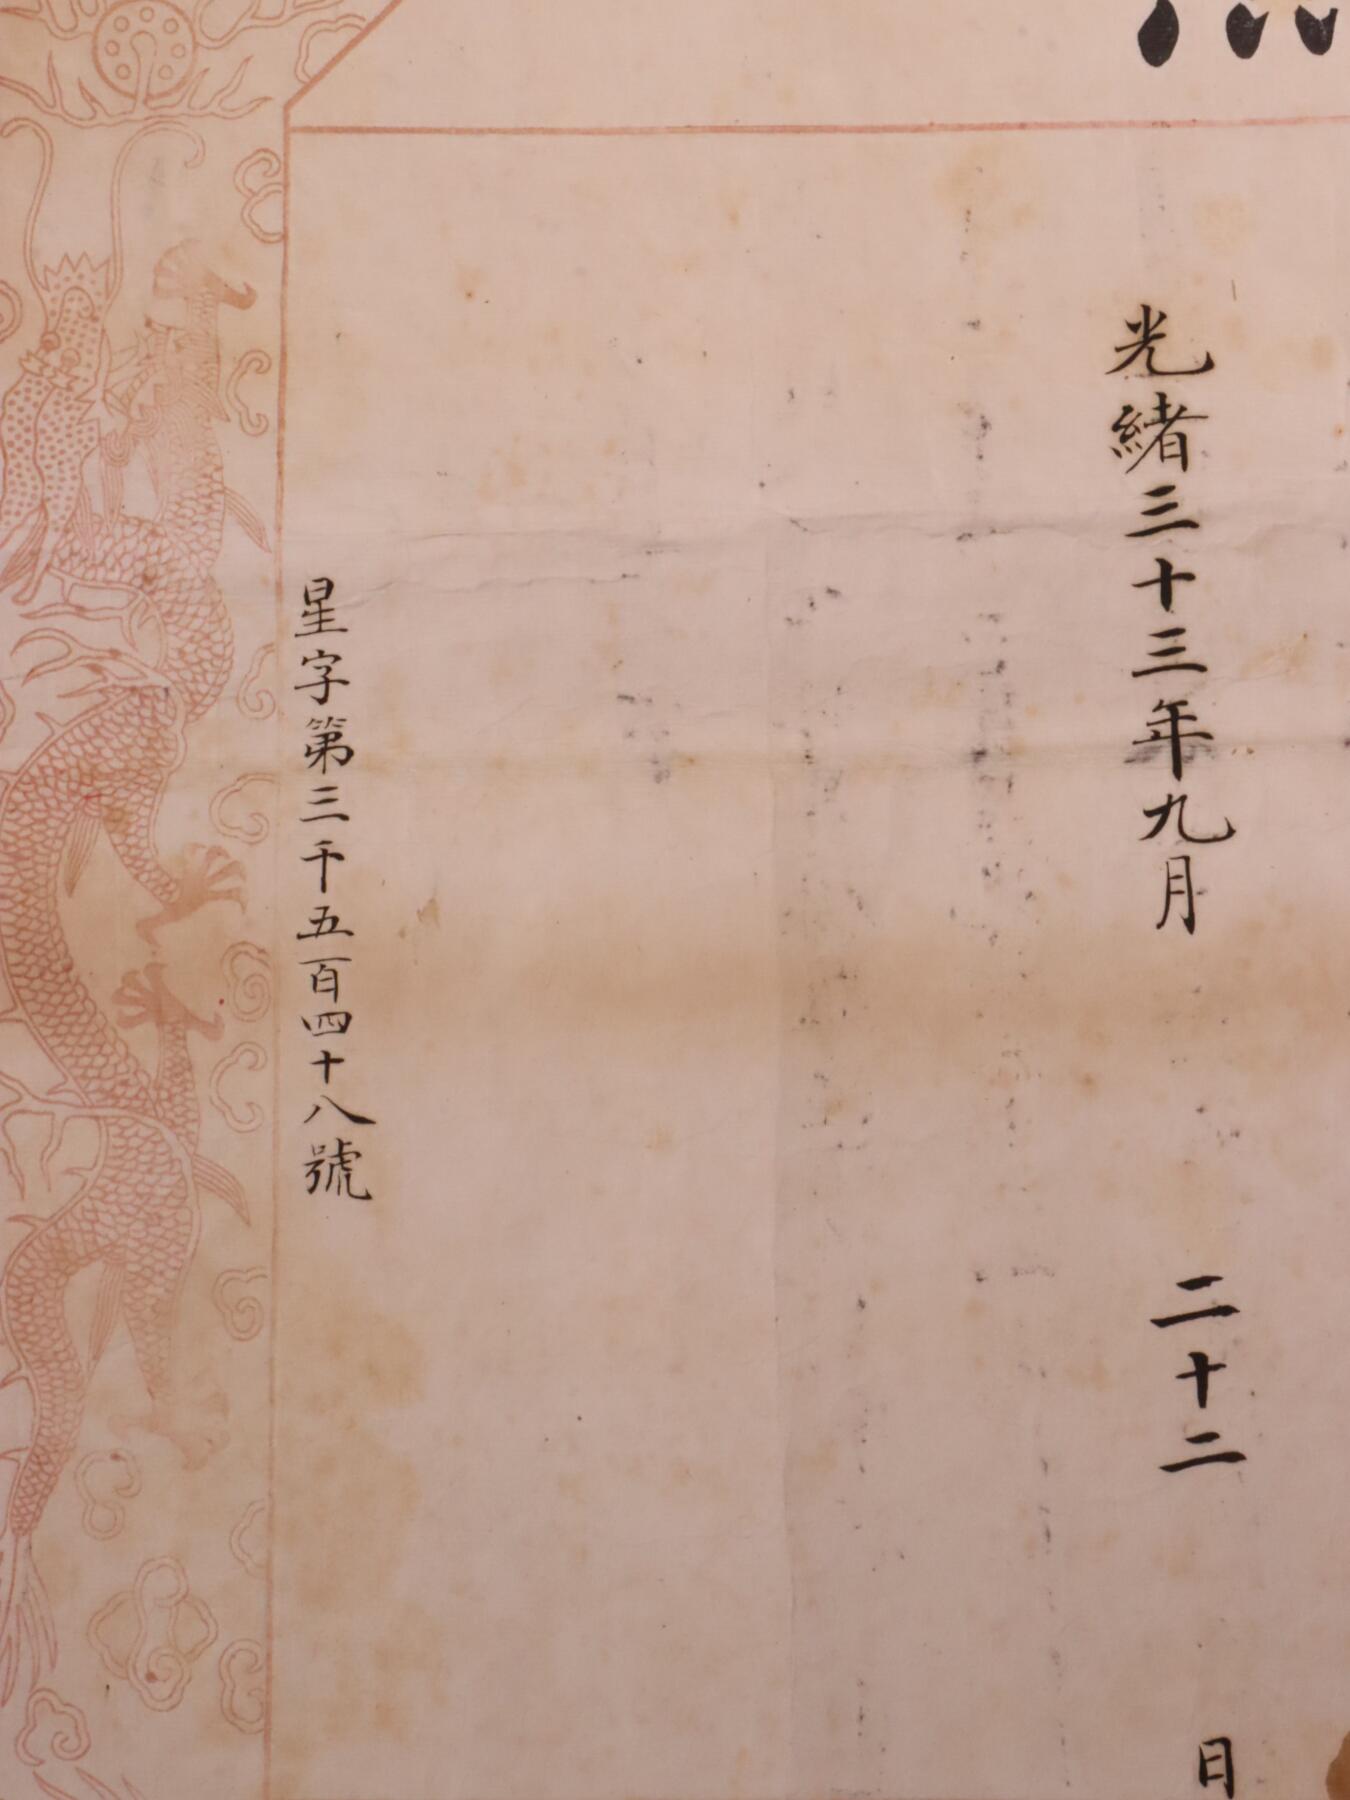 光緒三十三年九月 二十二 日
星字第三千五百四十八號